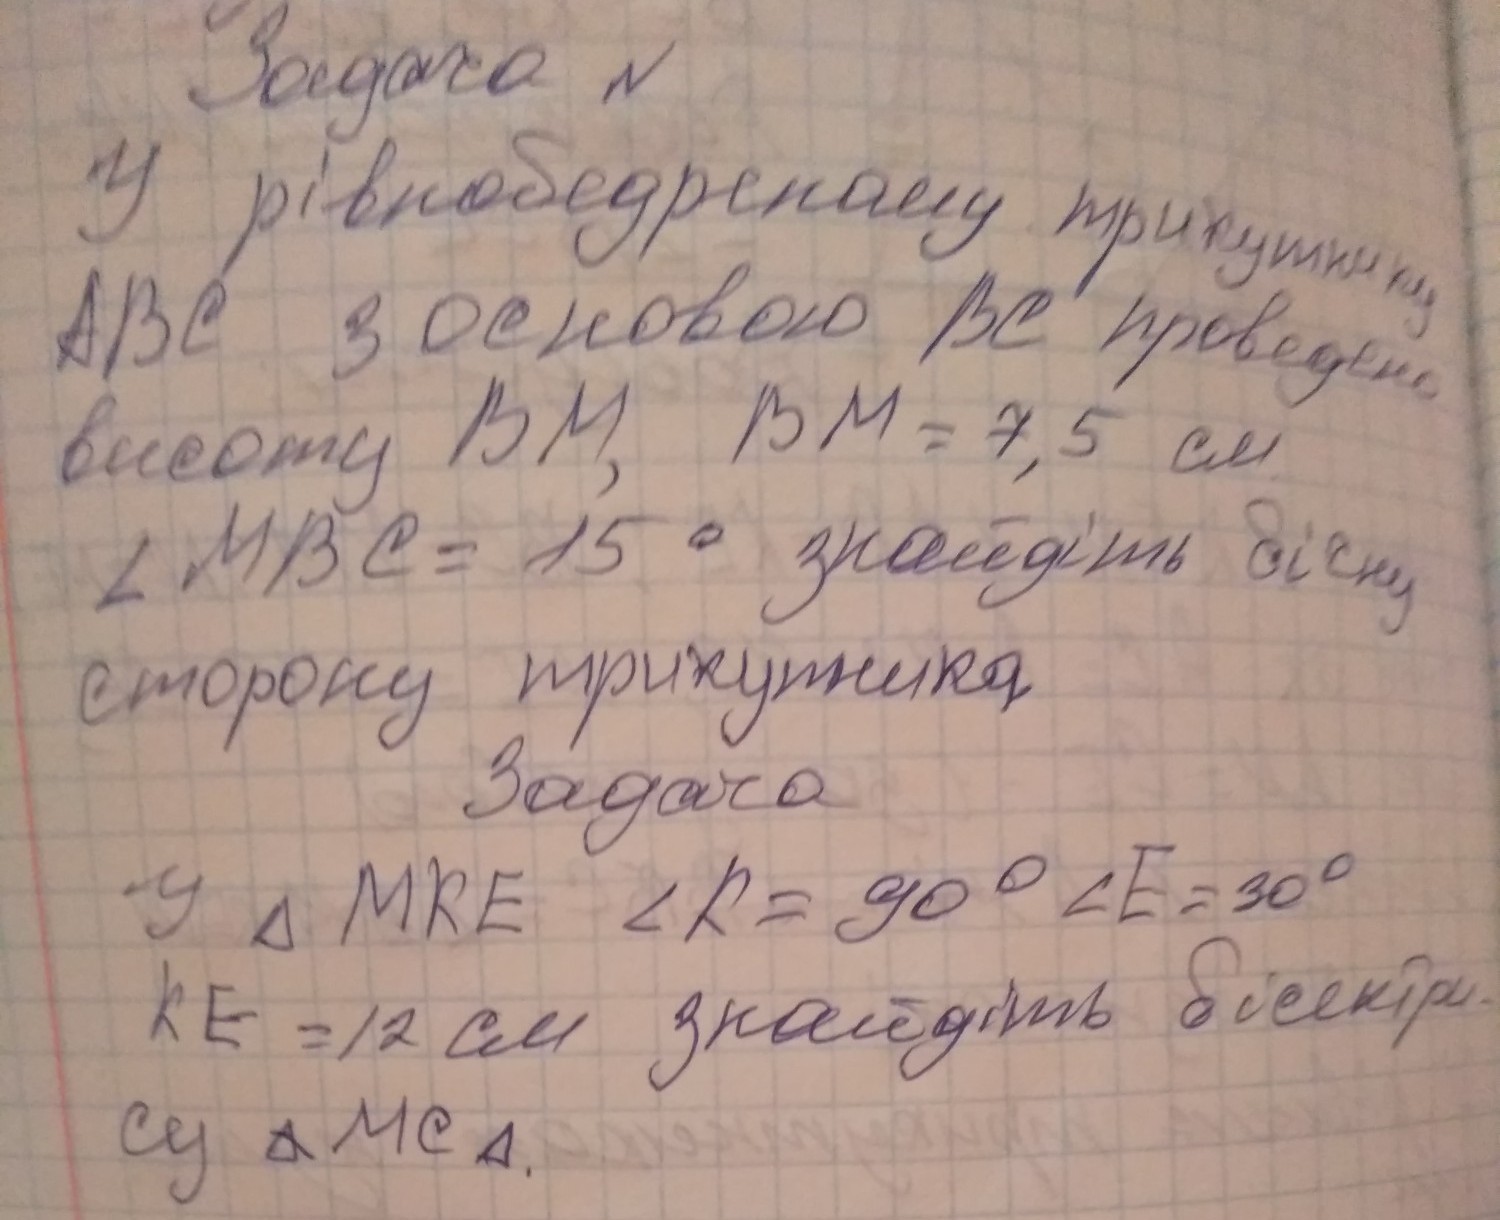 Задача N
У рівнобедреному трикутнику
АВС з основою ВС проведено
висоту ВМ, ВМ = 7,5 см
∠МВС = 15° знайдіть бічну
сторону трикутника
Задача
У △ МКЕ ∠К = 90° ∠Е = 30°
КЕ = 12 см знайдіть бісектри-
су △ МС △.